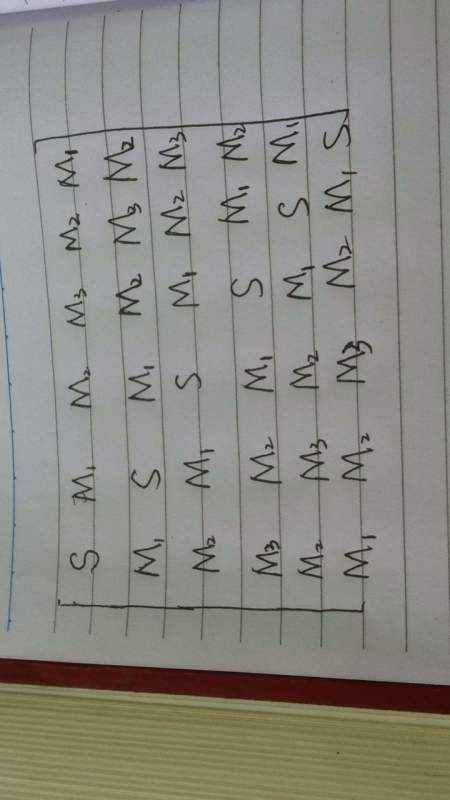 S M₁ M₂ M₃ M₂ M₁
M₁ S M₁ M₂ M₃ M₂
M₂ M₁ S M₁ M₂ M₃
M₃ M₂ M₁ S M₁ M₂
M₂ M₃ M₂ M₁ S M₁
M₁ M₂ M₃ M₂ M₁ S